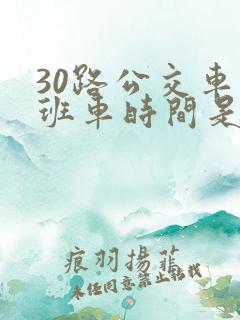 30路公交車
班車時間是
痕羽揚菲
未经同意禁止转载